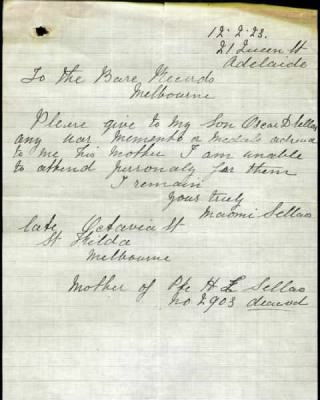 12.2.23.
21 Queen St
Adelaide
To the Base Records
Melbourne
Please give to My Son Oscar D Sellar
any war Memento or Medals
to me his Mother I am unable
to attend personaly for them
I remain
Yours truly
Naomi Sellar
late Octavia St
St Kilda
Melbourne
Mother of Pte H L Sellar
no 2903 deceased